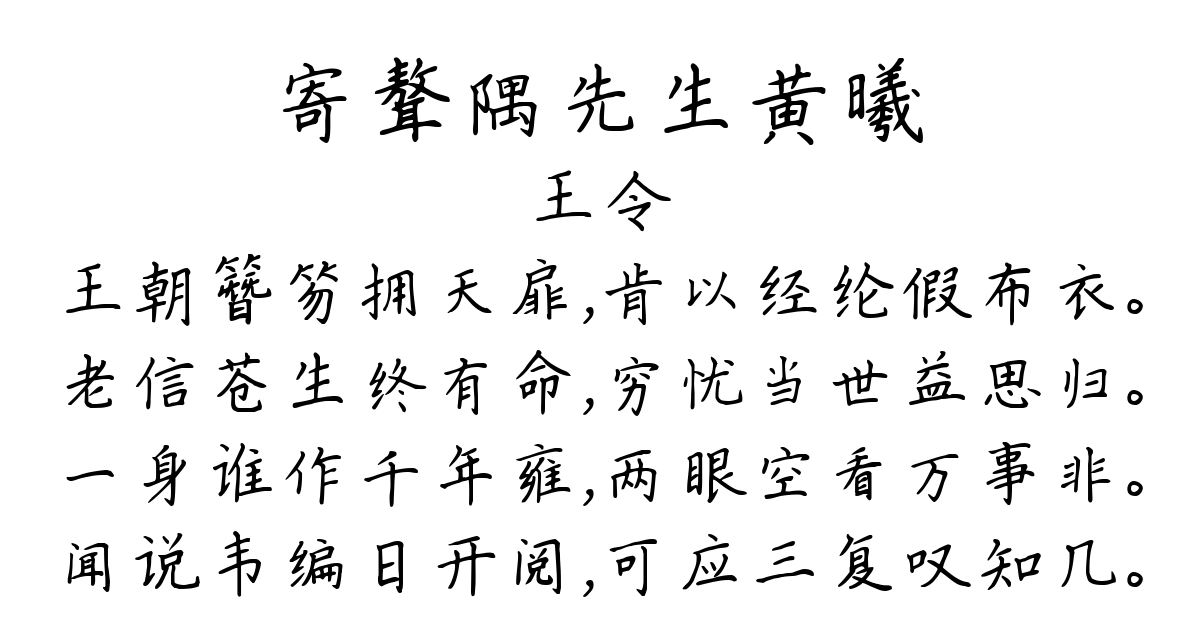 寄聱隅先生黄曦
王令
王朝簪笏拥天扉,肯以经纶假布衣。
老信苍生终有命,穷忧当世益思归。
一身谁作千年雍,两眼空看万事非。
闻说韦编日开阅,可应三复叹知几。